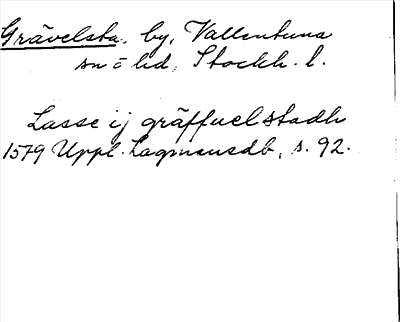 Grävelsta, by, Vallentuna
sn o hd, Stockh. l.
Lasse ij gräffuelstadh
1579 Uppl. Lagmansdb, s. 92.